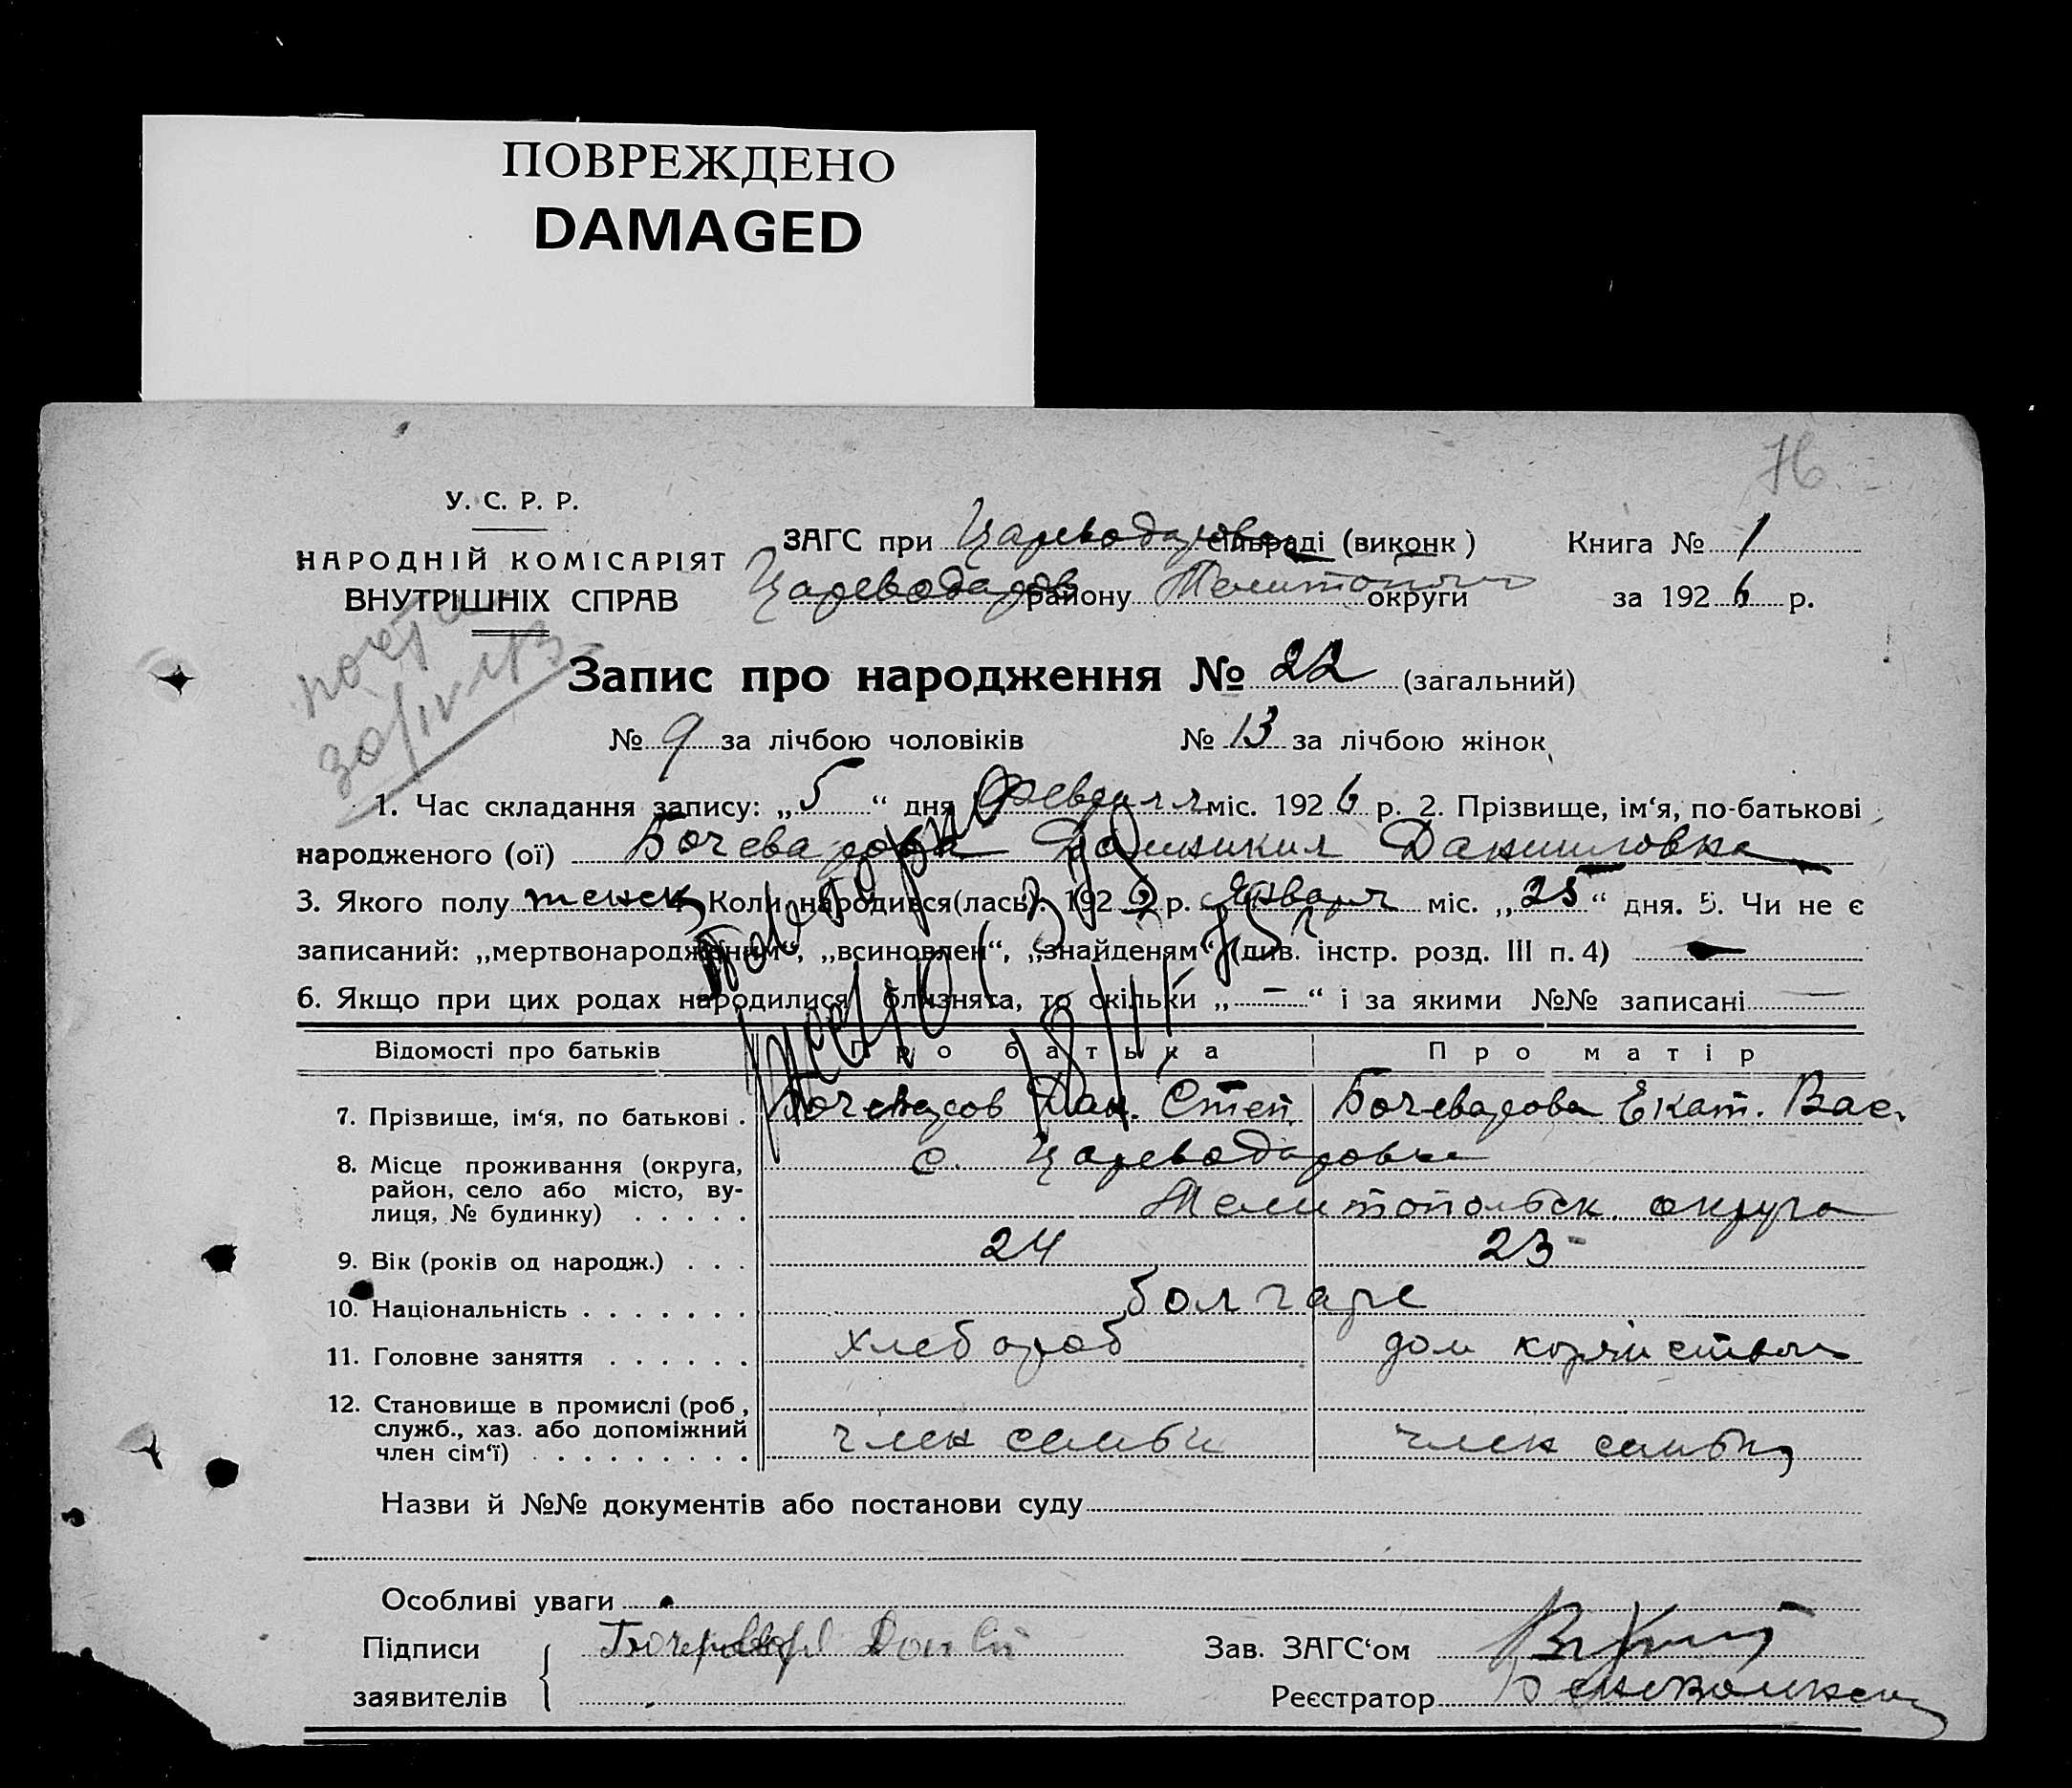 ПОВРЕЖДЕНО
DAMAGED
76
У. С. Р. Р.
НАРОДНІЙ КОМІСАРІЯТ
ВНУТРІШНІХ СПРАВ
ЗАГС при Цареводаровск сільраді (виконк) Книга № 1
Цареводаров району Мелитопольск округи за 1926 р.
Запис про народження № 22 (загальний)
№ 9 за лічбою чоловіків № 13 за лічбою жінок
1. Час складання запису: „5“ дня Февраля міс. 1926 р. 2. Прізвище, ім‘я, по-батькові
народженого (ої) Бочеварова Даниловна
3. Якого полу женск 4. Коли народився(лась): 192 р. Января міс. „25“ дня. 5. Чи не є
записаний: „мертвонародженим“, „всиновлен“, „знайденям“ (див. інстр. розд. III п. 4) —
6. Якщо при цих родах народилися близнята, то скільки „—“ і за якими №№ записані —
Відомості про батьків Про батька Про матір
7. Прізвище, ім‘я, по батькові . Бочеваров Дан. Степ Бочеварова Екат. Вас.
8. Місце проживання (округа,
район, село або місто, ву-
лиця, № будинку) . . . . .
с. Цареводаровка
Мелитопольск. округа
9. Вік (років од народж.) . . . 24 23
10. Національність . . . . . . . болгаре
11. Головне заняття . . . . . . хлебороб дом
12. Становище в промислі (роб.,
служб., хаз. або допоміжний
член сім‘ї) . . . . . . . . . член семьи член семьи
Назви й №№ документів або постанови суду
Особливі уваги
Підписи
заявителів
Зав. ЗАГС‘ом
Реєстратор